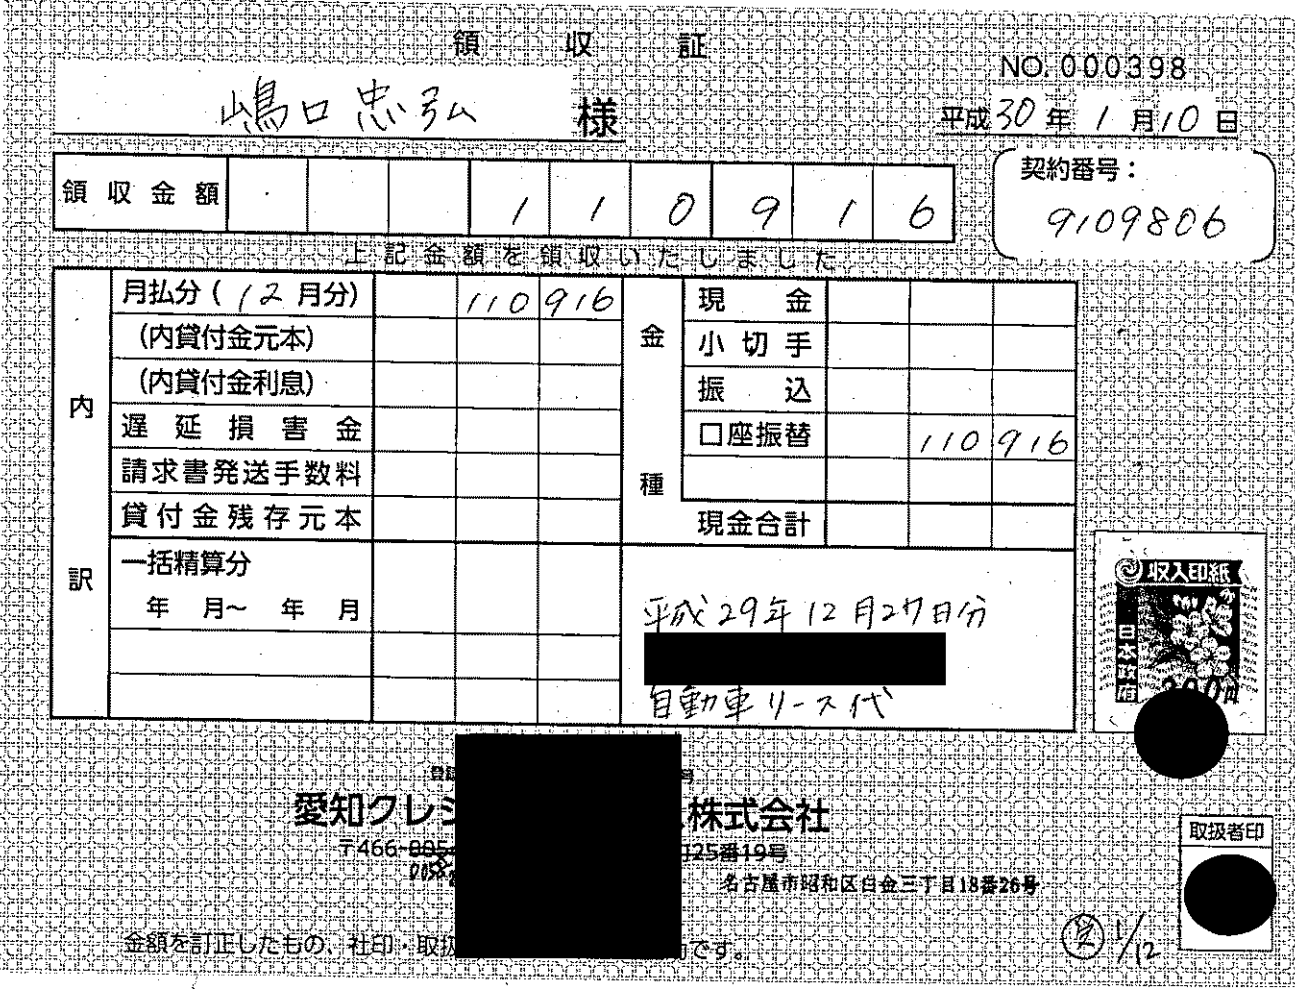 領収証
NO. 000398
嶋口忠弘 様
平成30年1月10日
領収金額 110916
契約番号:
9109806
上記金額を領収いたしました
内訳
月払分(12月分) 110916
(内貸付金元本)
(内貸付金利息)
遅延損害金
請求書発送手数料
貸付金残存元本
一括精算分
年 月~ 年 月
金種
現金
小切手
振込
口座振替 110916
現金合計
平成29年12月27日分
自動車リース代
収入印紙
日本政府
200円
愛知クレジ
株式会社
〒466-
25番19号
名古屋市昭和区白金三丁目18番26号
取扱者印
金額を訂正したもの、社印・取扱
です。
1/12